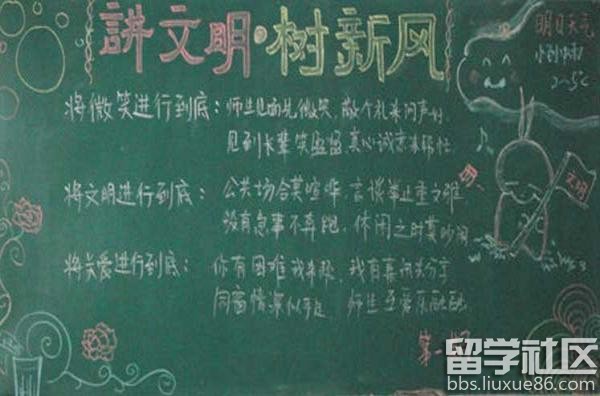 講文明·树新风
明日天气
小到中雨
2-5℃
将微笑进行到底：师生见面先微笑，敬个礼来问声好
见到长辈笑盈盈，真心诚意来帮忙
将文明进行到底：公共场合莫喧哗，言谈举止重文雅
没有急事不奔跑，休闲之时莫吵闹
文明
将关爱进行到底：你有困难我来帮，我有喜讯共分享
同窗情深似手足，师生互爱乐融融
第一期
留学社区
bbs.liuxue86.com